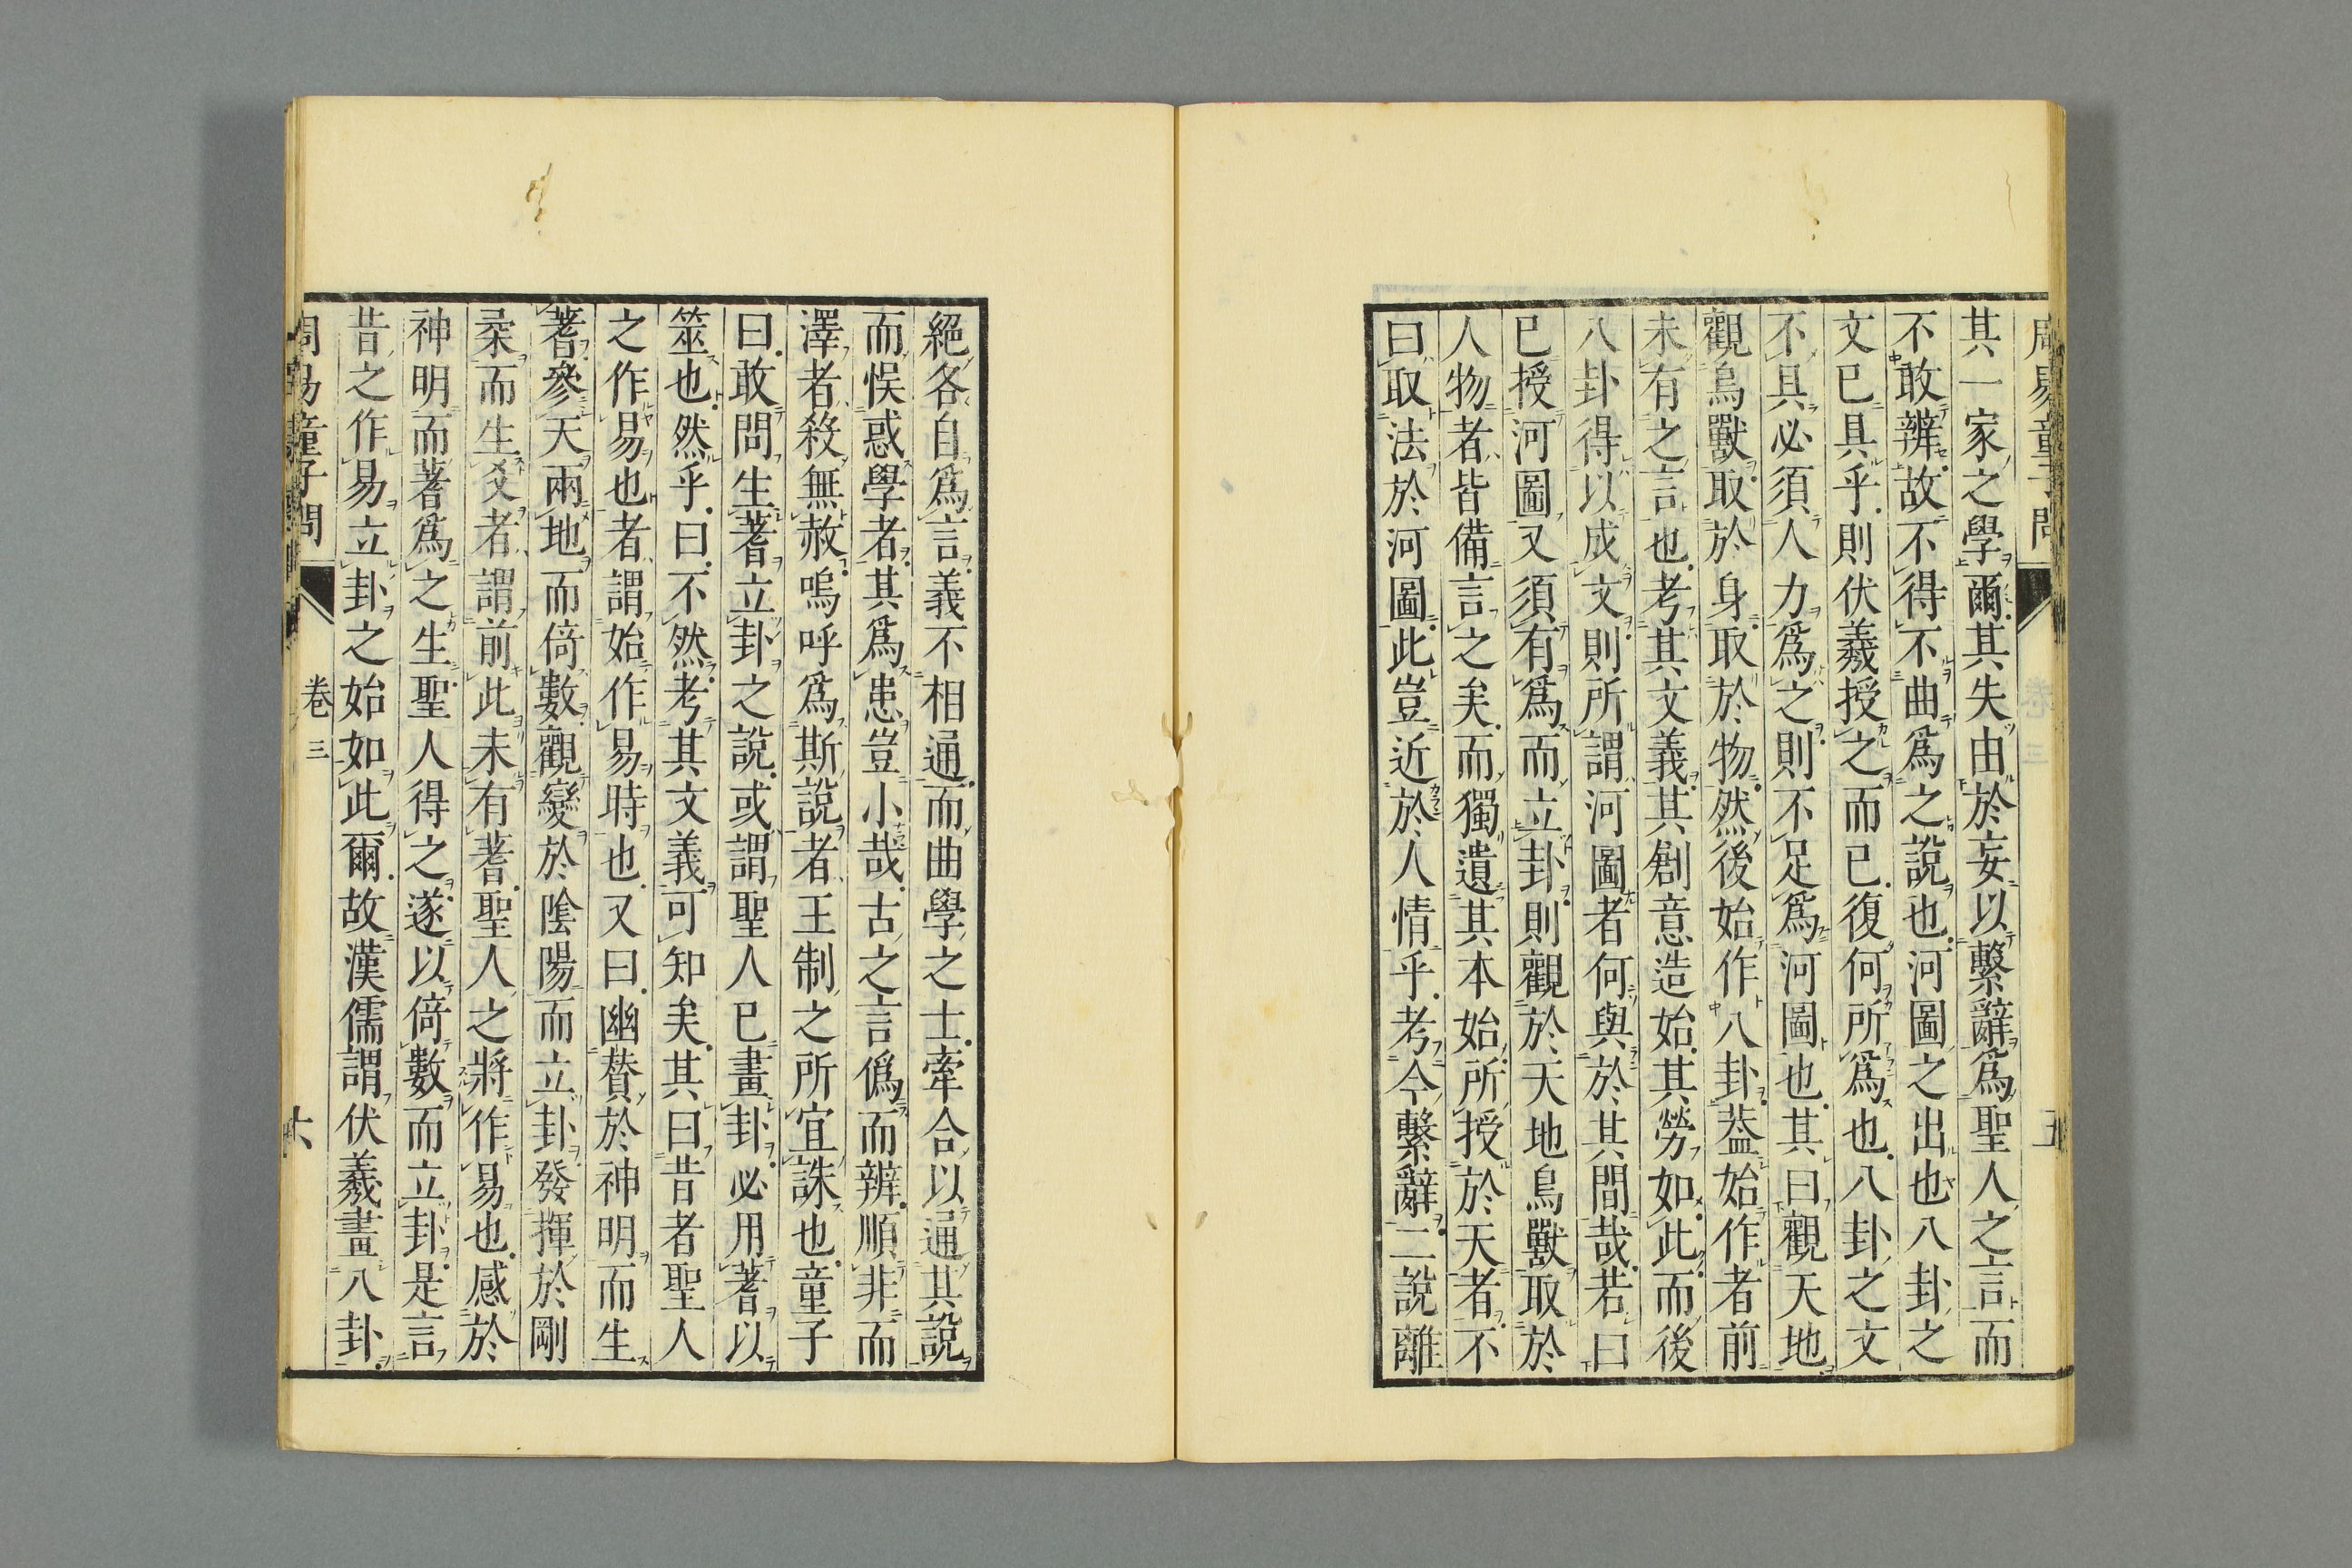 周易童子問 卷三 五
其一家之學爾其失由於妄以繫辭爲聖人之言而
不敢辨故不得不曲爲之說也河圖之出也八卦之
文已具乎則伏羲授之而已復何所爲也八卦之文
不具必須人力爲之則不足爲河圖也其曰觀天地
觀鳥獸取於身取於物然後始作八卦葢始作者前
未有之言也考其文義其創意造始其勞如此而後
八卦得以成文則所謂河圖者何與於其間哉若曰
已授河圖又須有爲而立卦則觀於天地鳥獸取於
人物者皆備言之矣而獨遺其本始所授於天者不
曰取法於河圖此豈近於人情乎考今繫辭二說離
絕各自爲言義不相通而曲學之士牽合以通其說
而悞惑學者其爲患豈小哉古之言僞而辨順非而
澤者殺無赦嗚呼爲斯說者王制之所宜誅也童子
曰敢問生蓍立卦之說或謂聖人已畫卦必用蓍以
筮也然乎曰不然考其文義可知矣其曰昔者聖人
之作易也者謂始作易時也又曰幽賛於神明而生
蓍參天兩地而倚數觀變於陰陽而立卦發揮於剛
柔而生爻者謂前此未有蓍聖人之將作易也感於
神明而蓍爲之生聖人得之遂以倚數而立卦是言
昔之作易立卦之始如此爾故漢儒謂伏羲畫八卦
周易童子問 卷三 六